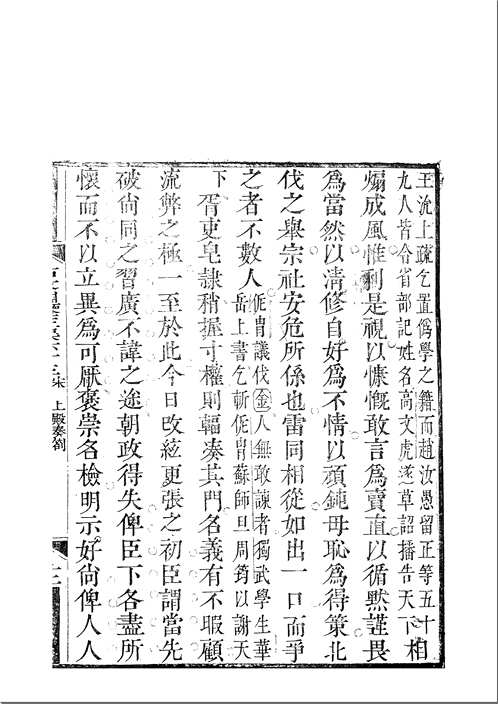 王沇上疏乞置僞學之籍而趙汝愚留正等五十
九人皆令省部記姓名高文虎遂草詔播告天下
相
煽成風惟利是視以慷慨敢言爲賣直以循黙謹畏
爲當然以清修自好爲不情以頑鈍毋恥爲得策北
伐之舉宗社安危所係也雷同相從如出一口而爭
之者不數人
侂冑議伐金人無敢諫者獨武學生華
岳上書乞斬侂冑蘇師旦周筠以謝天
下
胥吏皂隷稍握寸權則輻湊其門名義有不暇顧
流弊之極一至於此今日改絃更張之初臣謂當先
破尚同之習廣不諱之途朝政得失俾臣下各盡所
懷而不以立異爲可厭褒崇名檢明示好尚俾人人
宋 上殿奏劄